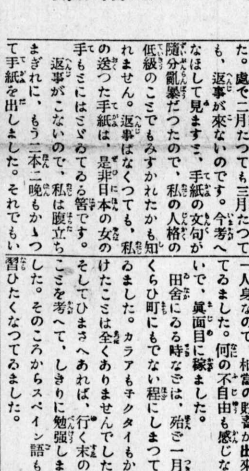 た。處で二月たつても三月たつて
も、返事が來ないのです。今考へ
なほして見ますと、手紙の文句が
隨分亂暴だつたので、私の人格の
低級のことでもみすかれたかも知
れません。返事はなくつても、私
の送つた手紙は、是非日本の女の
手もとにはとゞゐてる筈です。
返事がこないので、私は腹立ち
まぎれに、もう二本二晩もかゝつ
て手紙を出しました。それでもい
てゐました。何の不自由も感じな
いで、眞面目に稼ました。
田舍にゐる時などは、殆ど一日
くらひ町にもでない程にしまつて
ゐました。カラアもネクタイもか
けたことは全くありませんでした
そしてひまさへあれば、行く末の
ことを考へて、しきりに勉強しま
した。そのころからスペイン語も
習ひたくなつてゐました。